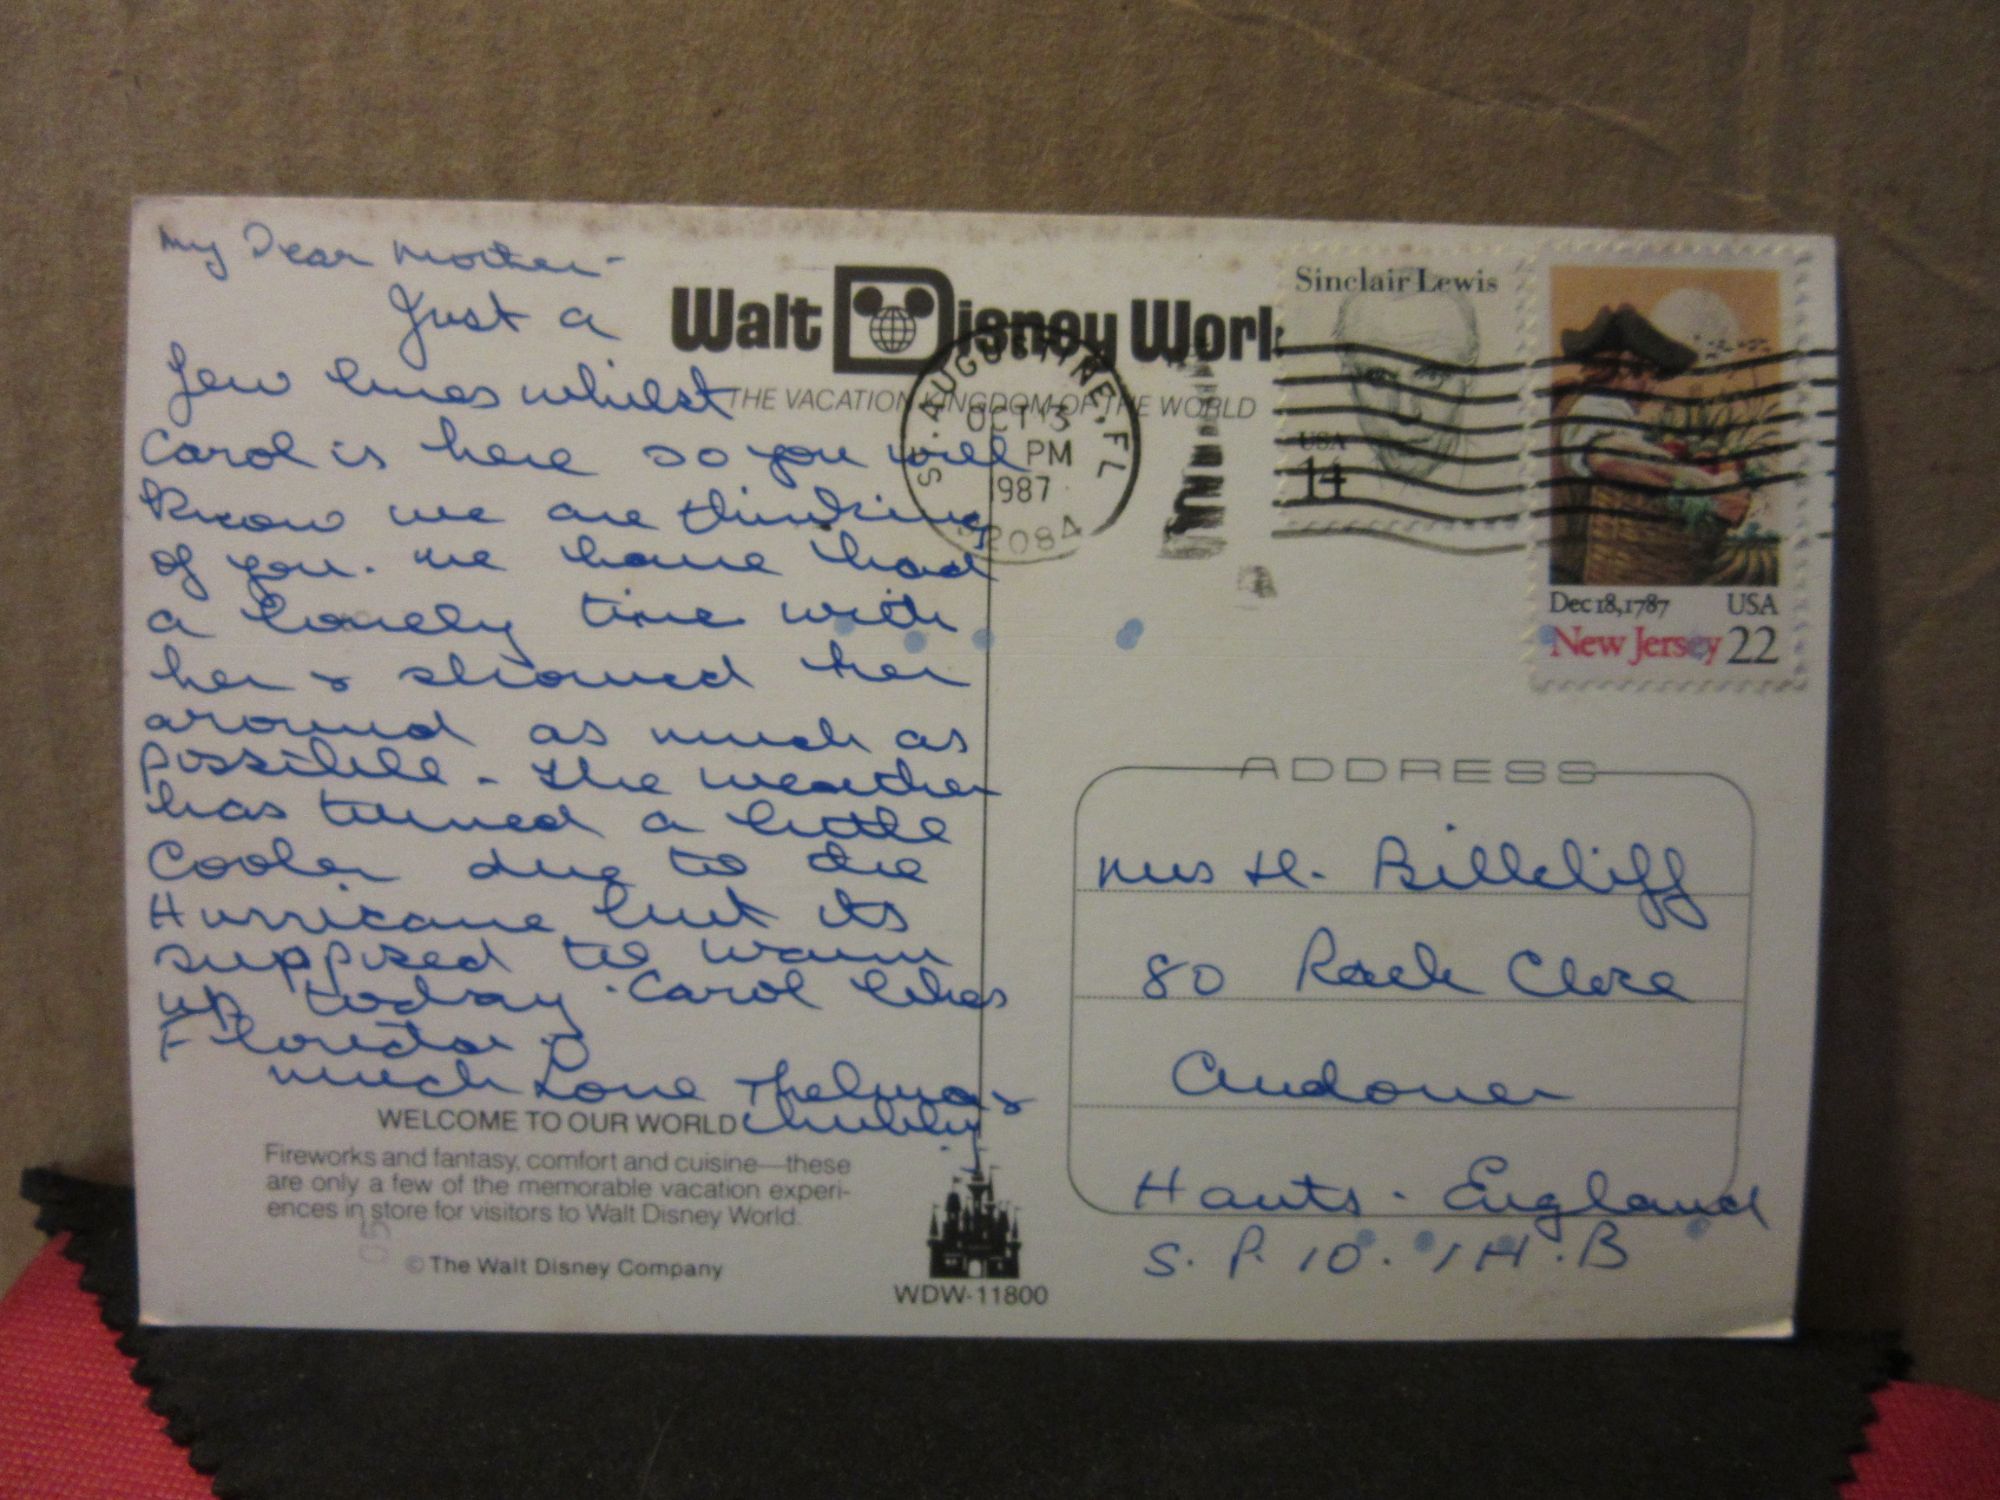 My Dear Mother -
Just a
few lines whilst
Carol is here so you will
know we are thinking
of you. We have had
a lovely time with
her & showed her
around as much as
possible - The weather
has turned a little
Cooler due to the
Hurricane but its
supposed to warm
up today. Carol likes
Florida.
Much Love Thelma &
Chubby
WELCOME TO OUR WORLD
Fireworks and fantasy, comfort and cuisine—these
are only a few of the memorable vacation experi-
ences in store for visitors to Walt Disney World.
© The Walt Disney Company
WDW-11800
Walt Disney Worl
THE VACATION KINGDOM OF THE WORLD
ST. AUGUSTINE, FL
OCT 13
PM
1987
32084
Sinclair Lewis
USA
14
Dec 18, 1787 USA
New Jersey 22
ADDRESS
Mrs H. Billcliff
80 Rack Close
Andover
Hants. England
S. P. 10. 1 H. B